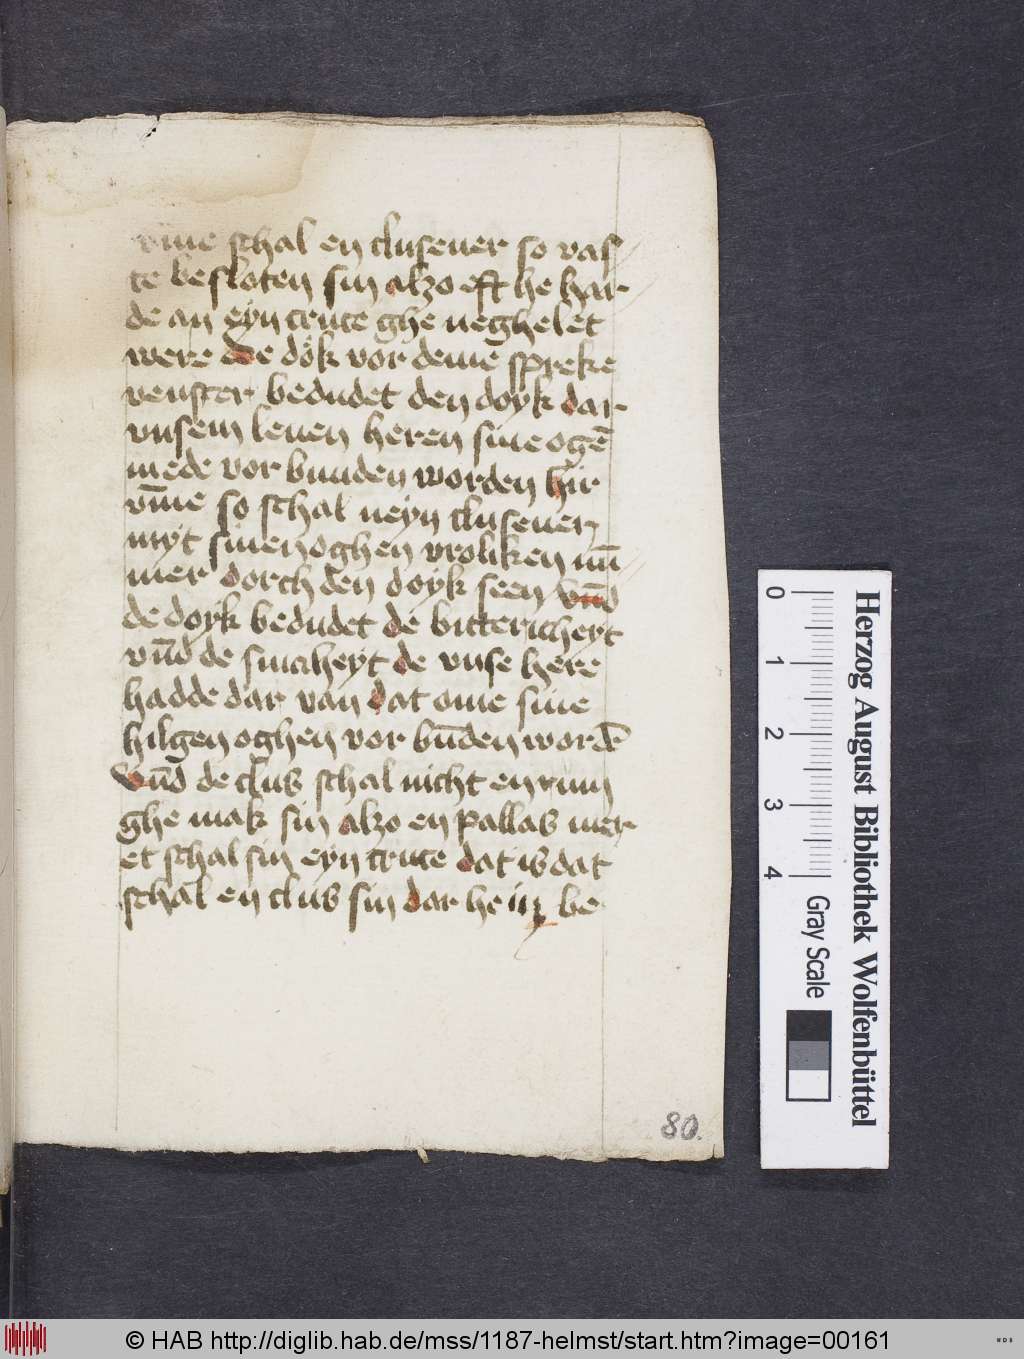 vme schal en clusener so vas/
te besloten sin alzo eft he har
de an eyn cruce ghe neghelet
were de dok vor deme spreke
venster bedudet den doyk dar
vnsem leuen heren sine ogē
mede vor bunden worden hir
vm̄e so schal neyn clusener
myt sinen oghen vroliken nū
mer dorch den doyk seen vn̄d
de doyk bedudet de bittericheyt
vn̄d de smaheyt de vnse here
hadde dar van dat ome sine
hilgen oghen vor būden wordē
vn̄d de clus schal nicht en rum
ghe mak sin alzo en pallas mer
et schal sin eyn cruce dat is dat
schal en clus sin dar he in be
80.
Herzog August Bibliothek Wolfenbüttel
0 1 2 3 4 Gray Scale
© HAB http://diglib.hab.de/mss/1187-helmst/start.htm?image=00161
WDB